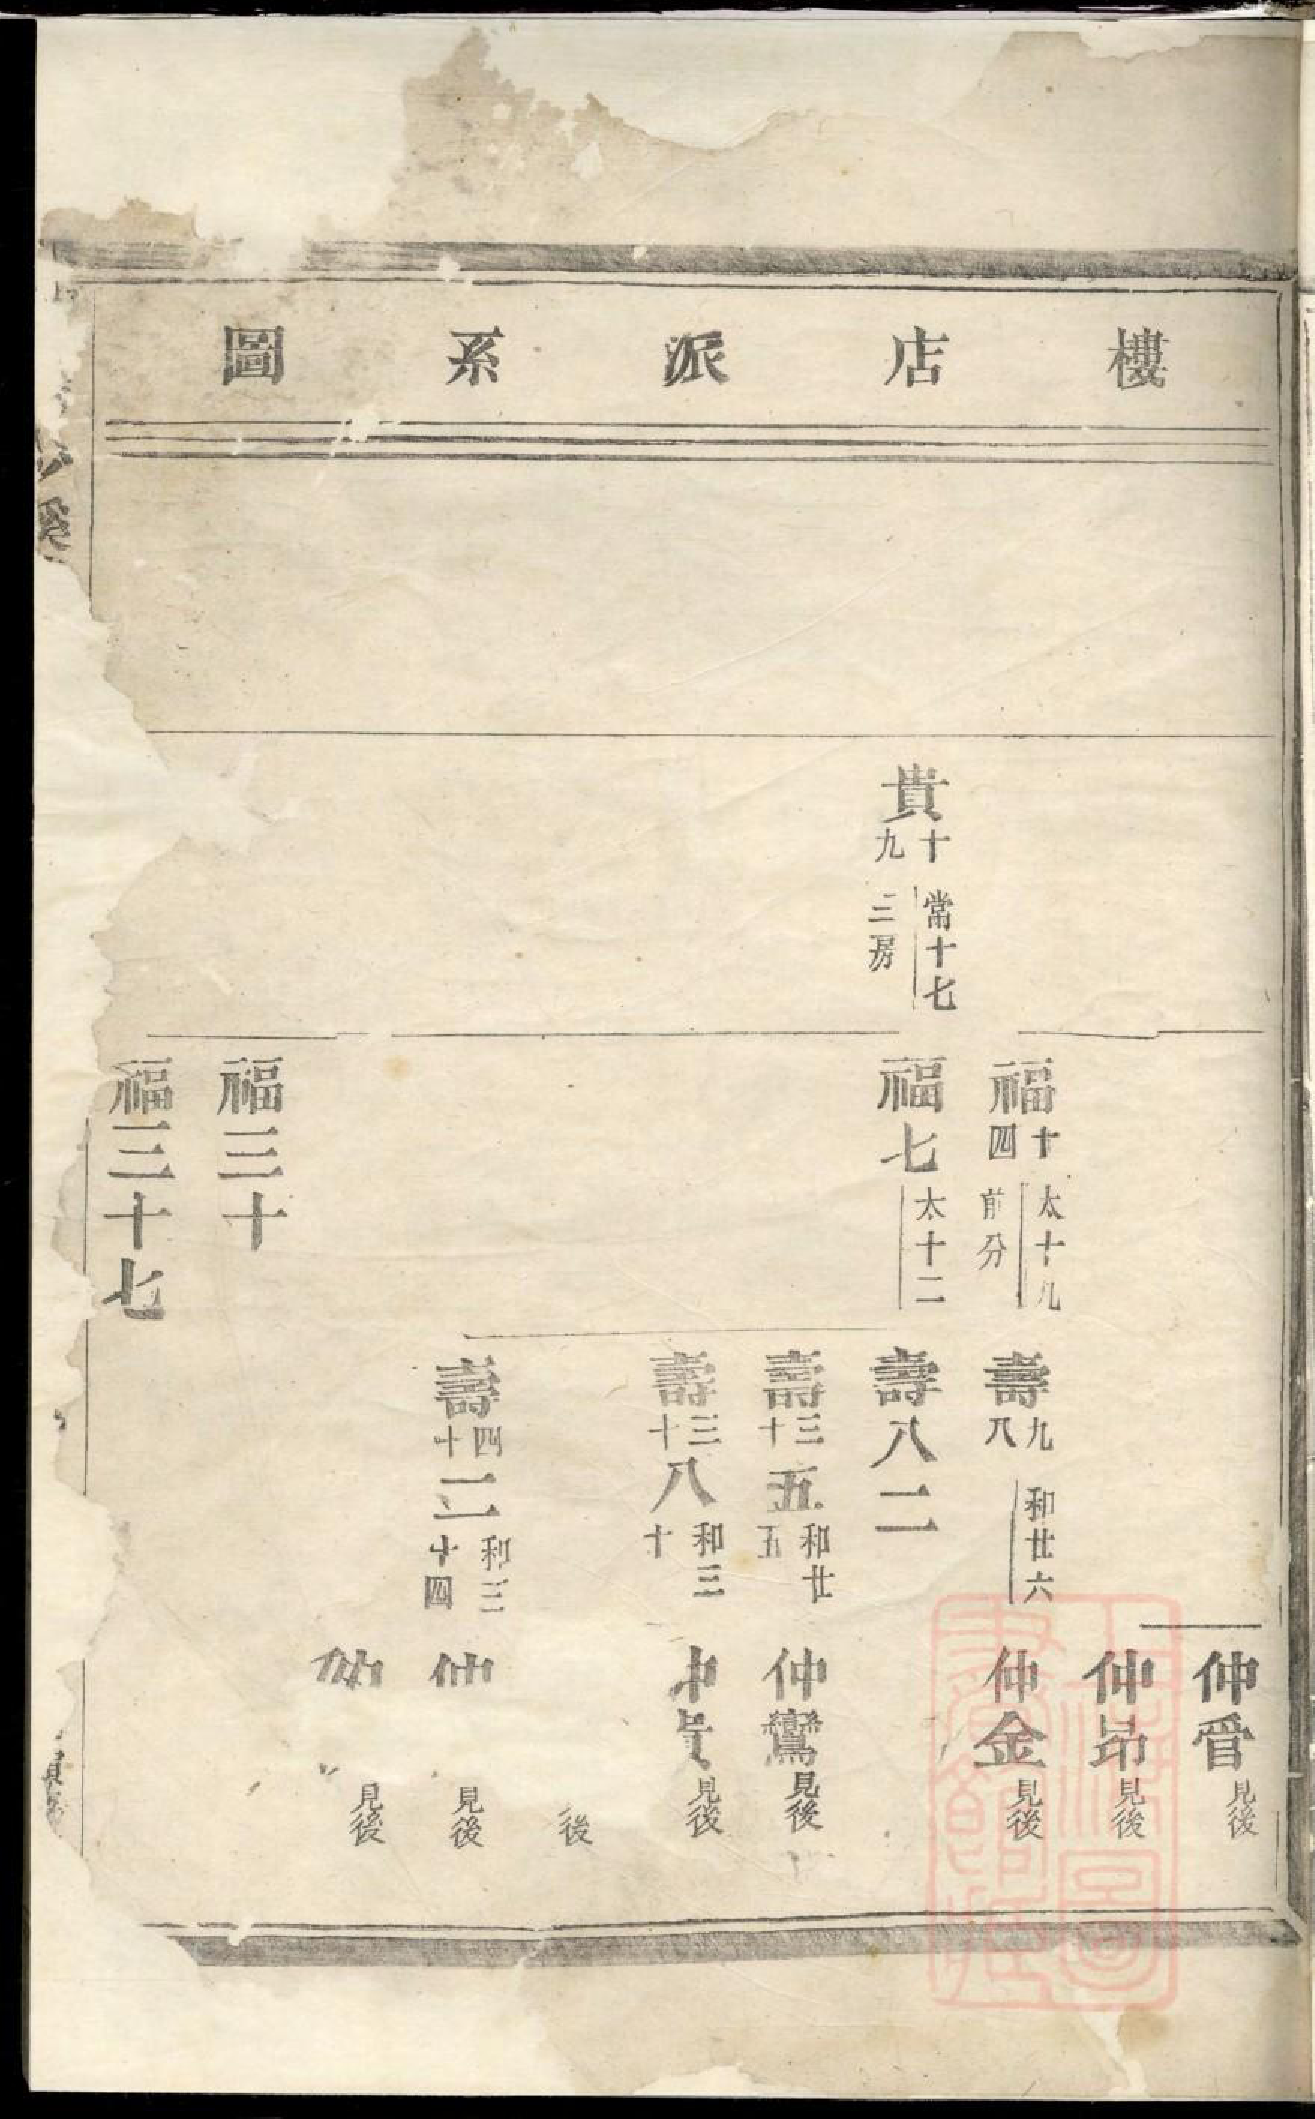 樓店派系圖
貴十九 常十七三房
福十四 太十九前分
福七 太十二
福三十
福三十七
壽九八 和廿六
壽八二
壽三十五 和廿五
壽三十八 和三十
壽四十二 和三十四
仲 見後
仲昂 見後
仲金 見後
仲鸞 見後
見後
後
見後
見後